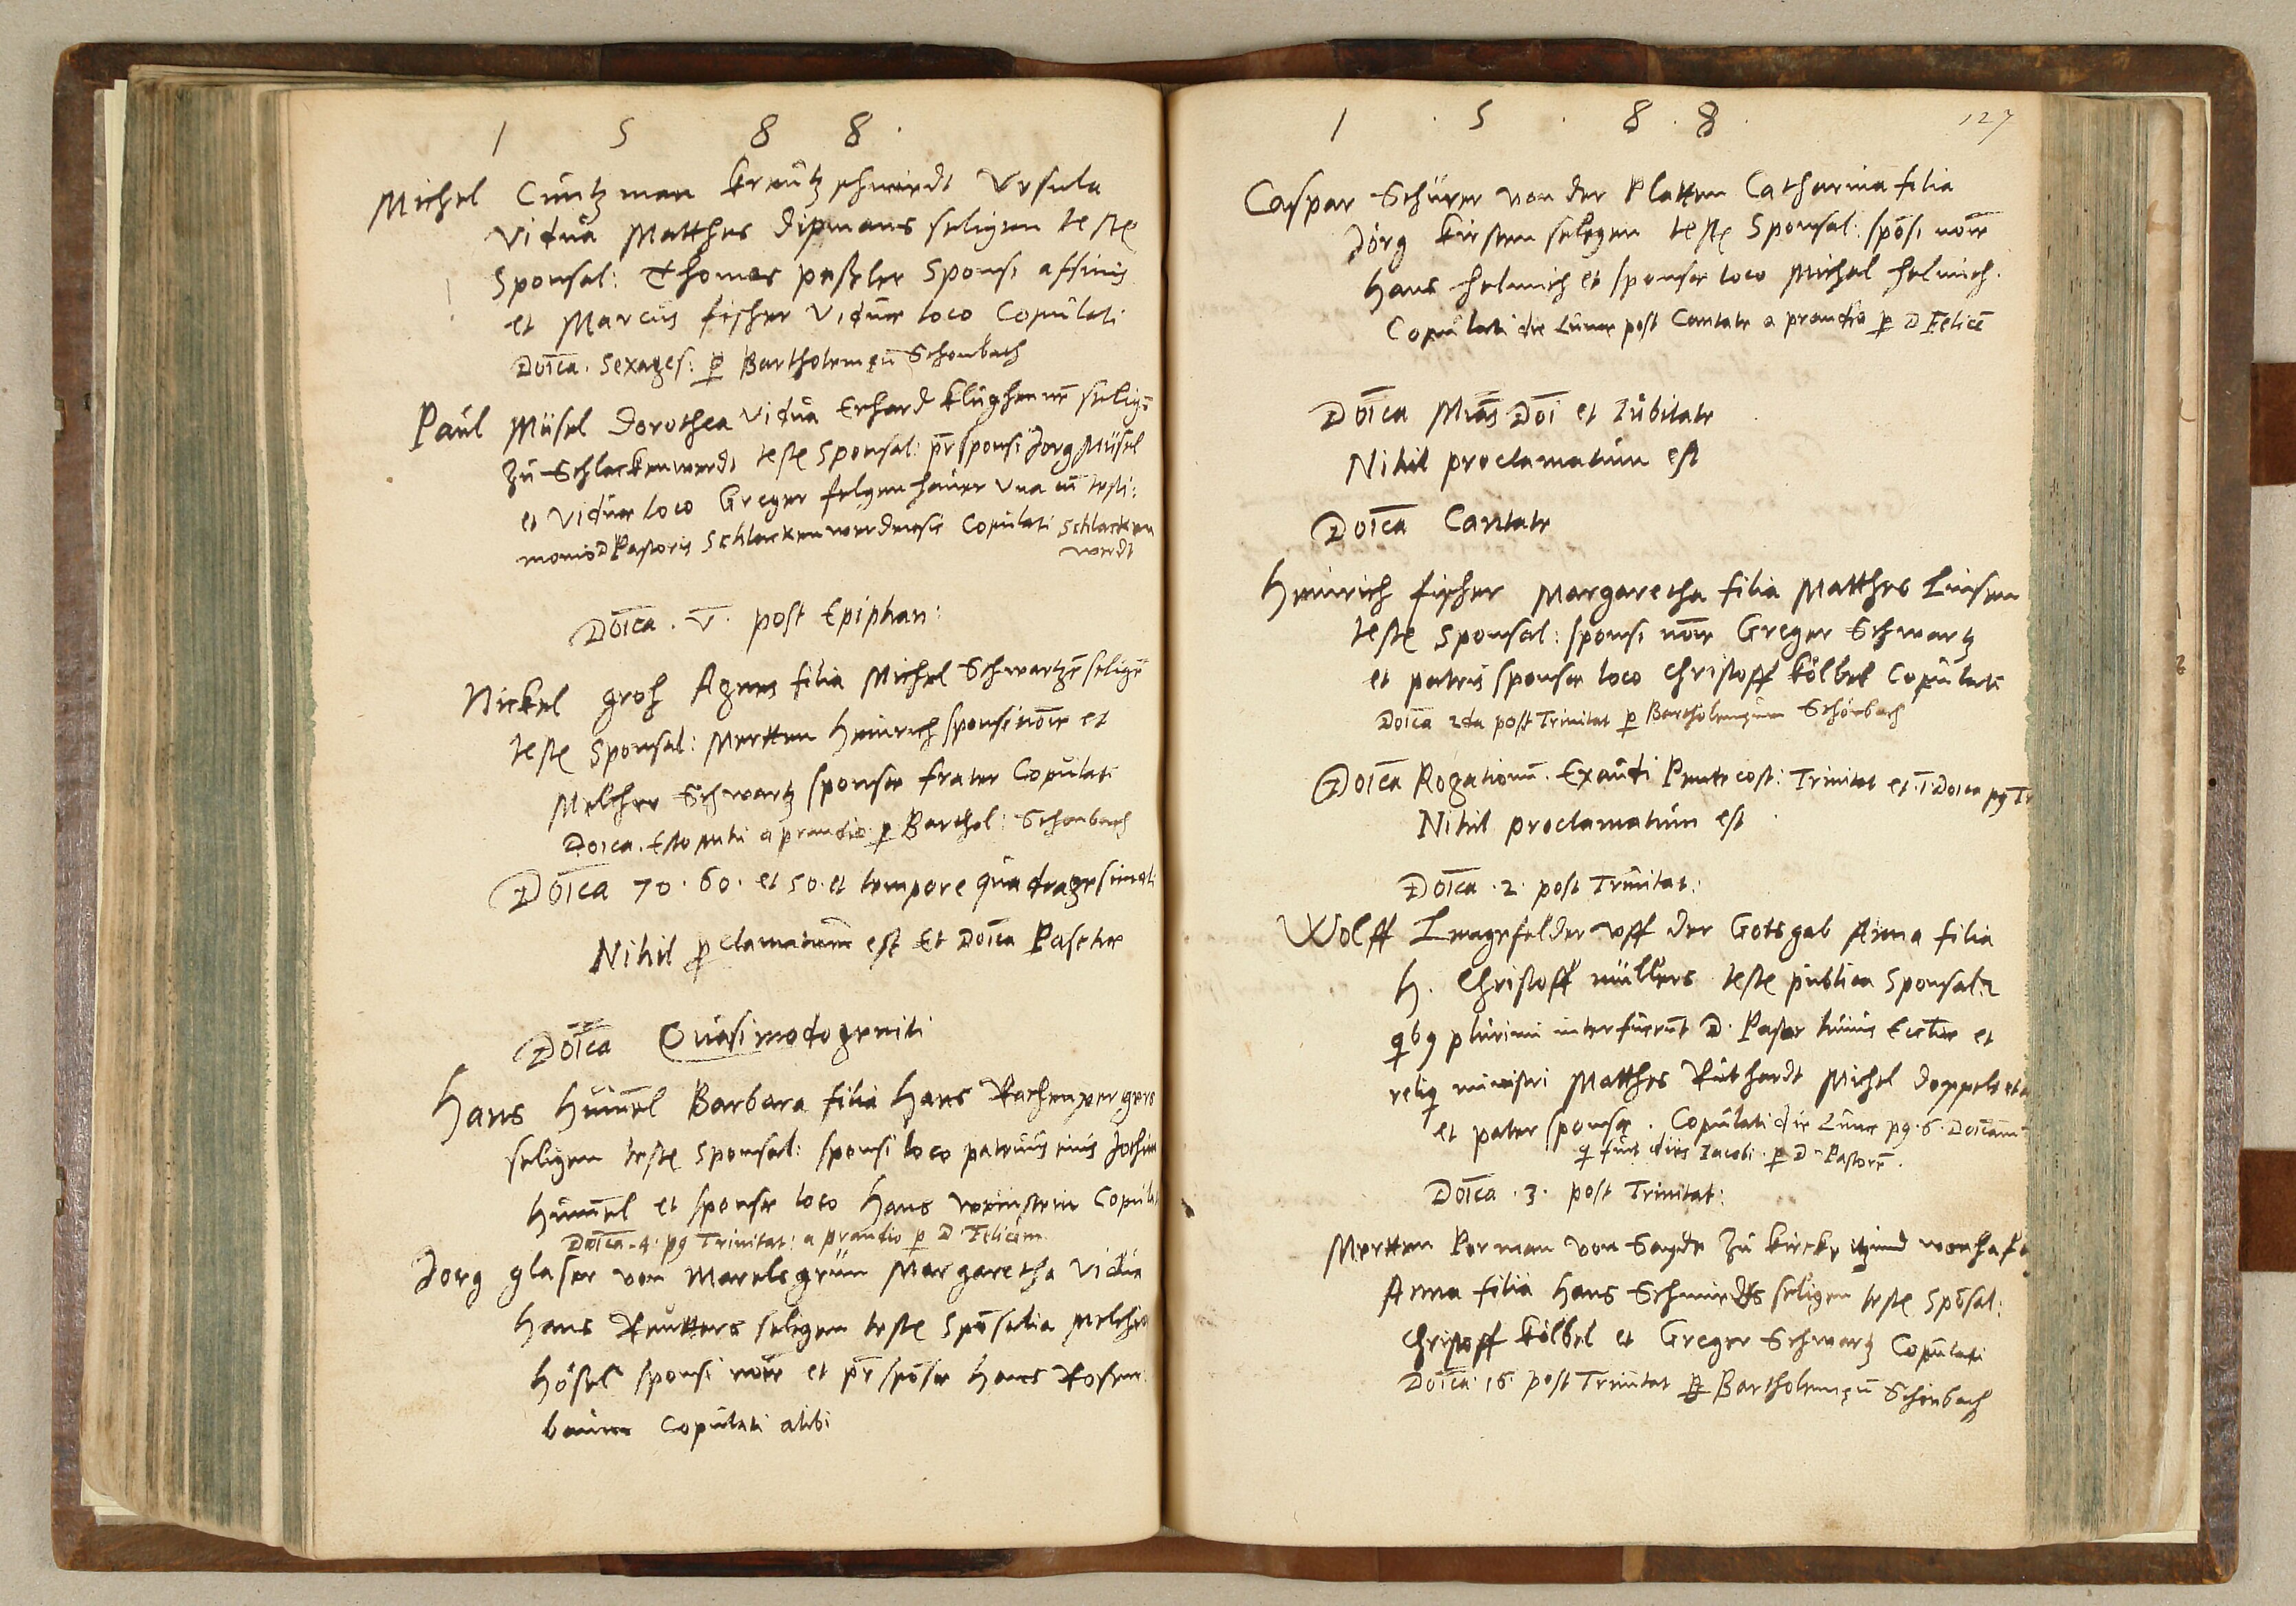 1 5 8 8 .
Michel Cuntzman kreutzschmiedt Vrsula
Vidua Matthes dipmans seligen teste
Sponsal: Thomas peßler Sponsi affinis
et Marcus fischer Viduæ loco Copulati
Doı̄ca . Sexages: p Bartholemęū Schonbach
Paul Müsel Dorothea Vidua Erhard seligē
Zu Schlackenwerdt teste Sponsal: pr̄ sponsi Jorg Müsel
et Viduæ loco Greger felgenhauer Vna cū testi:
monio D Pastoris Schlackenwerdensis Copulati Schlacken
werdt
Doı̄ca . V . post Epiphan:
Nickel groh Agnes filia Michel Schwartzē seligē
teste Sponsal: Mertten Heinrich sponsi noı̄e et
Melcher Schwartz sponsæ frater Copulati
Doıca . Esto mihi a prandio p Barthol: Schonbach
Doı̄ca 70 . 60 . et 50 . et tempore quadragesimali
Nihil pclamatum est Et Doı̄ca Pascæ
Doı̄ca Quasimodogeniti
Hans Himel Barbara filia Hans Rachenpergers
seligen teste Sponsal: sponsi loco patruus eius
himel et sponsæ loco Hans weinstein Copula
Doı̄ca . 4 . p9 Trinitat: a prandio p D Felicem
Jorg glaser von Marelsgrün Margaretha Vidua
Hans Reutters seligen teste Spōsalia Melchior
Hösel sponsi noı̄e et pr̄ spōsæ Hans Rosen
baum Copulati alibi
1 . 5 . 8 . 8 .
127
Caspar Schürer von der Platten Catharina filia
Jörg kirsten seligen teste Sponsal: spōsi noı̄e
Hans helmich et sponsæ loco Michel helmich .
Copulati die Lunæ post Cantate a prandio p D Felicē
Doı̄ca Mı̄as Doı̄ et Iubilate
Nihil proclamatum est
Doı̄ca Cantate
Heinrich fischer Margaretha filia Matthes Linsen
teste Sponsal: sponsi noı̄e Greger Schwartz
et patris sponsæ loco Christoff kölbel Copulati
Doı̄ca 2da post Trinitat p Bartholemęum Schönbach
Doı̄ca Rogationū . Exaudi Pentecost: Trinitat et . 1 Doıca p9 Tr
Nihil proclamatum est .
Doı̄ca . 2 . post Trinitat:
Wolff Lengefelder vff der Gotsgab Anna filia
H . Christoff müllers teste publica Sponsal:
qb9 plurimi interfuerūt D . Pastor huius Eccl̄iæ et
reliq ministri Matthes Ruthardt Michel
et pater sponsæ . Copulati die Lunæ p9 . 6 . Doı̄cam
q fuit dies Iacobi p D Pastorē .
Doı̄ca . 3 . post Trinitat:
Mertten Perman von Sayda Zu kircke itzund
Anna filia Hans Schmiedts seligen teste Spōsal:
Christoff kölbel et Greger Schwartz Copulati
Doı̄ca 16 post Trinitat p Bartholemęū Schönbach